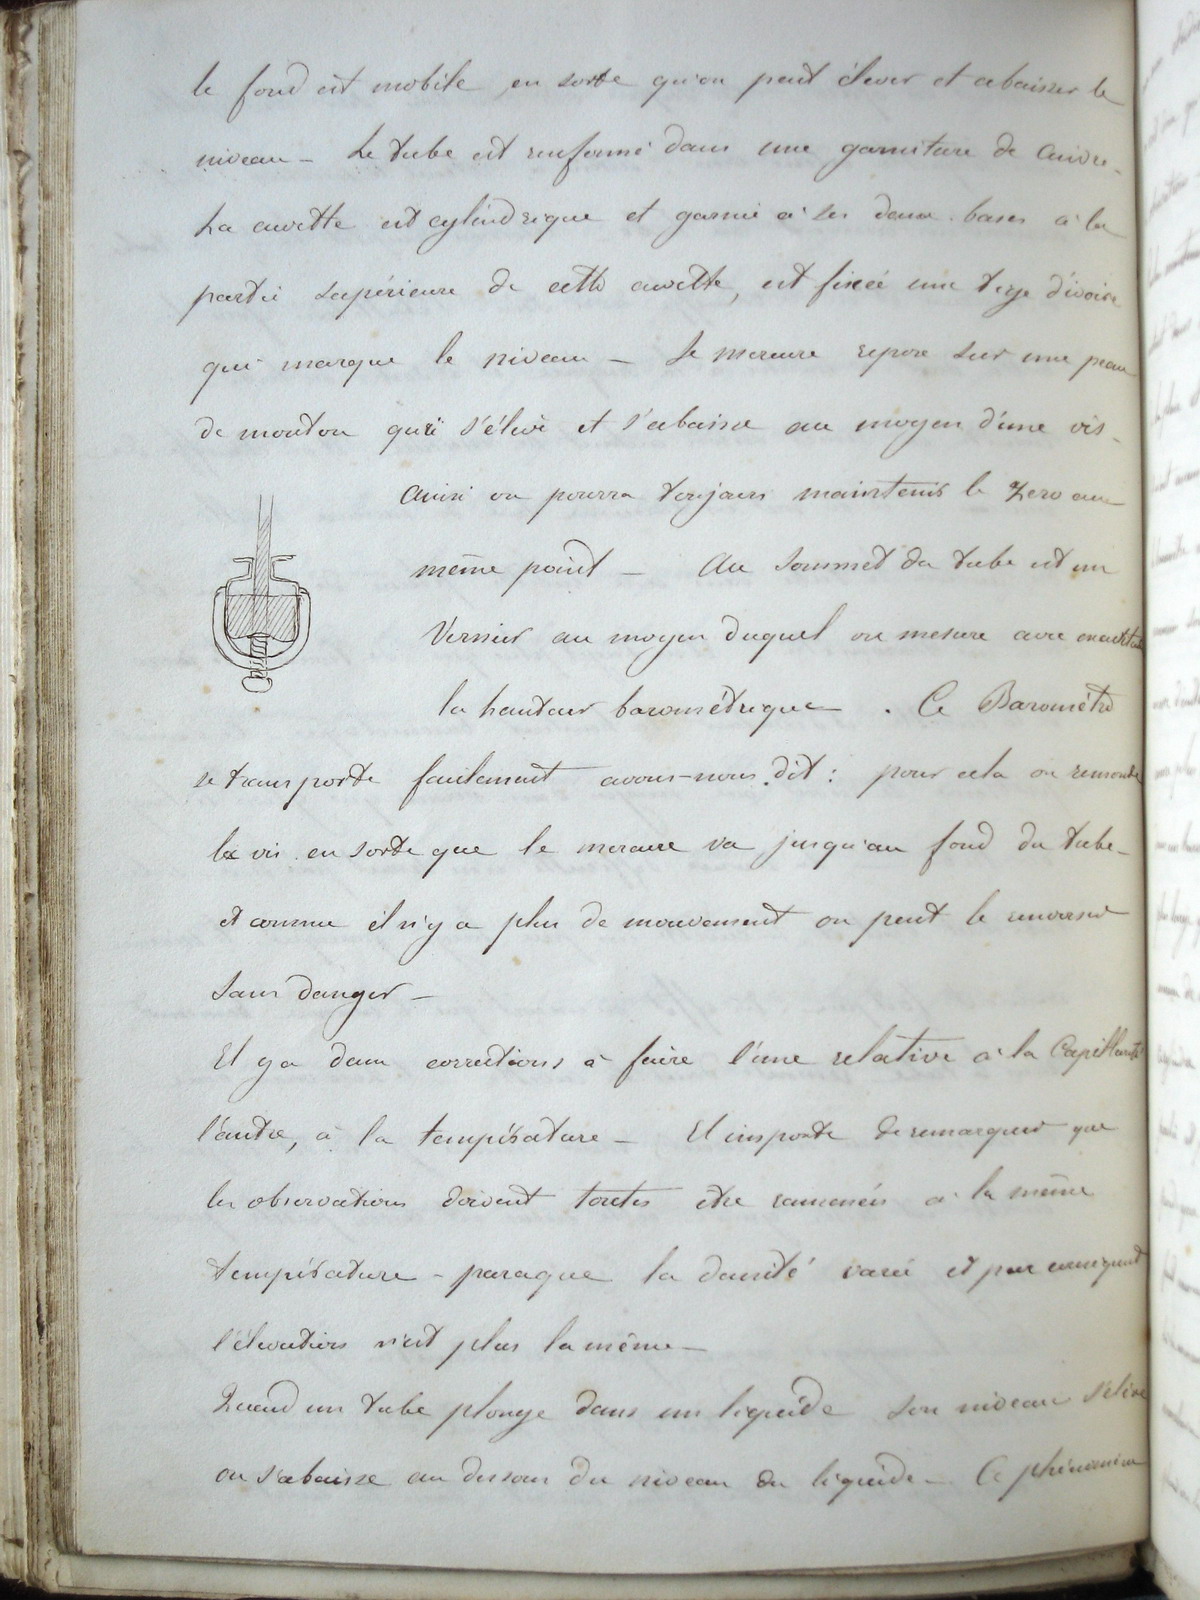 le fond est mobile en sorte qu'on peut élever et abaisser le
niveau – Le tube est renfermé dans une garniture de cuivre.
La cuvette est cylindrique et garnie à ses deux bases à la
partie supérieure de cette cuvette, est fixée une tige d'ivoire
qui marque le niveau – Le mercure repose sur une peau
de mouton qui s'élève et s'abaisse au moyen d'une vis –
Ainsi on pourra toujours maintenir le Zero au
même point – Au sommet du tube est un
Vernier au moyen duquel on mesure avec exactitude
la hauteur barométrique . Ce Baromètre
se transporte facilement avons-nous dit : pour cela on remonte
la vis en sorte que le mercure va jusqu'au fond du tube –
et comme il n'y a plus de mouvement on peut le renverser
sans danger –
Il y a deux corrections à faire l'une relative à la Capillarité
l'autre, à la température – Il importe de remarquer que
les observations doivent toutes être ramenées à la même
température – parceque la densité varie et par conséquent
l'élévation n'est plus la même –
Quand un tube plonge dans un liquide son niveau s'élève
ou s'abaisse au dessous du niveau du liquide – Ce phénomène